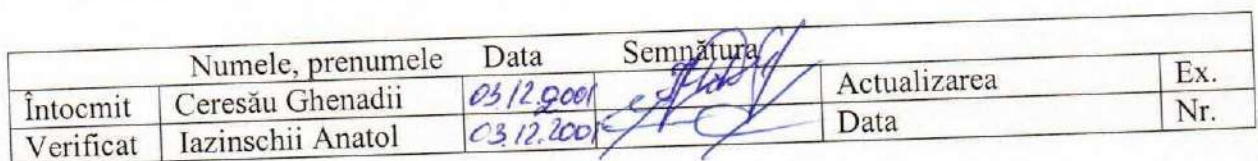 Numele, prenumele Data Semnătura
Întocmit Ceresău Ghenadii 03/12.2001 Actualizarea Ex.
Verificat Iazinschii Anatol 03.12.2001 Data Nr.